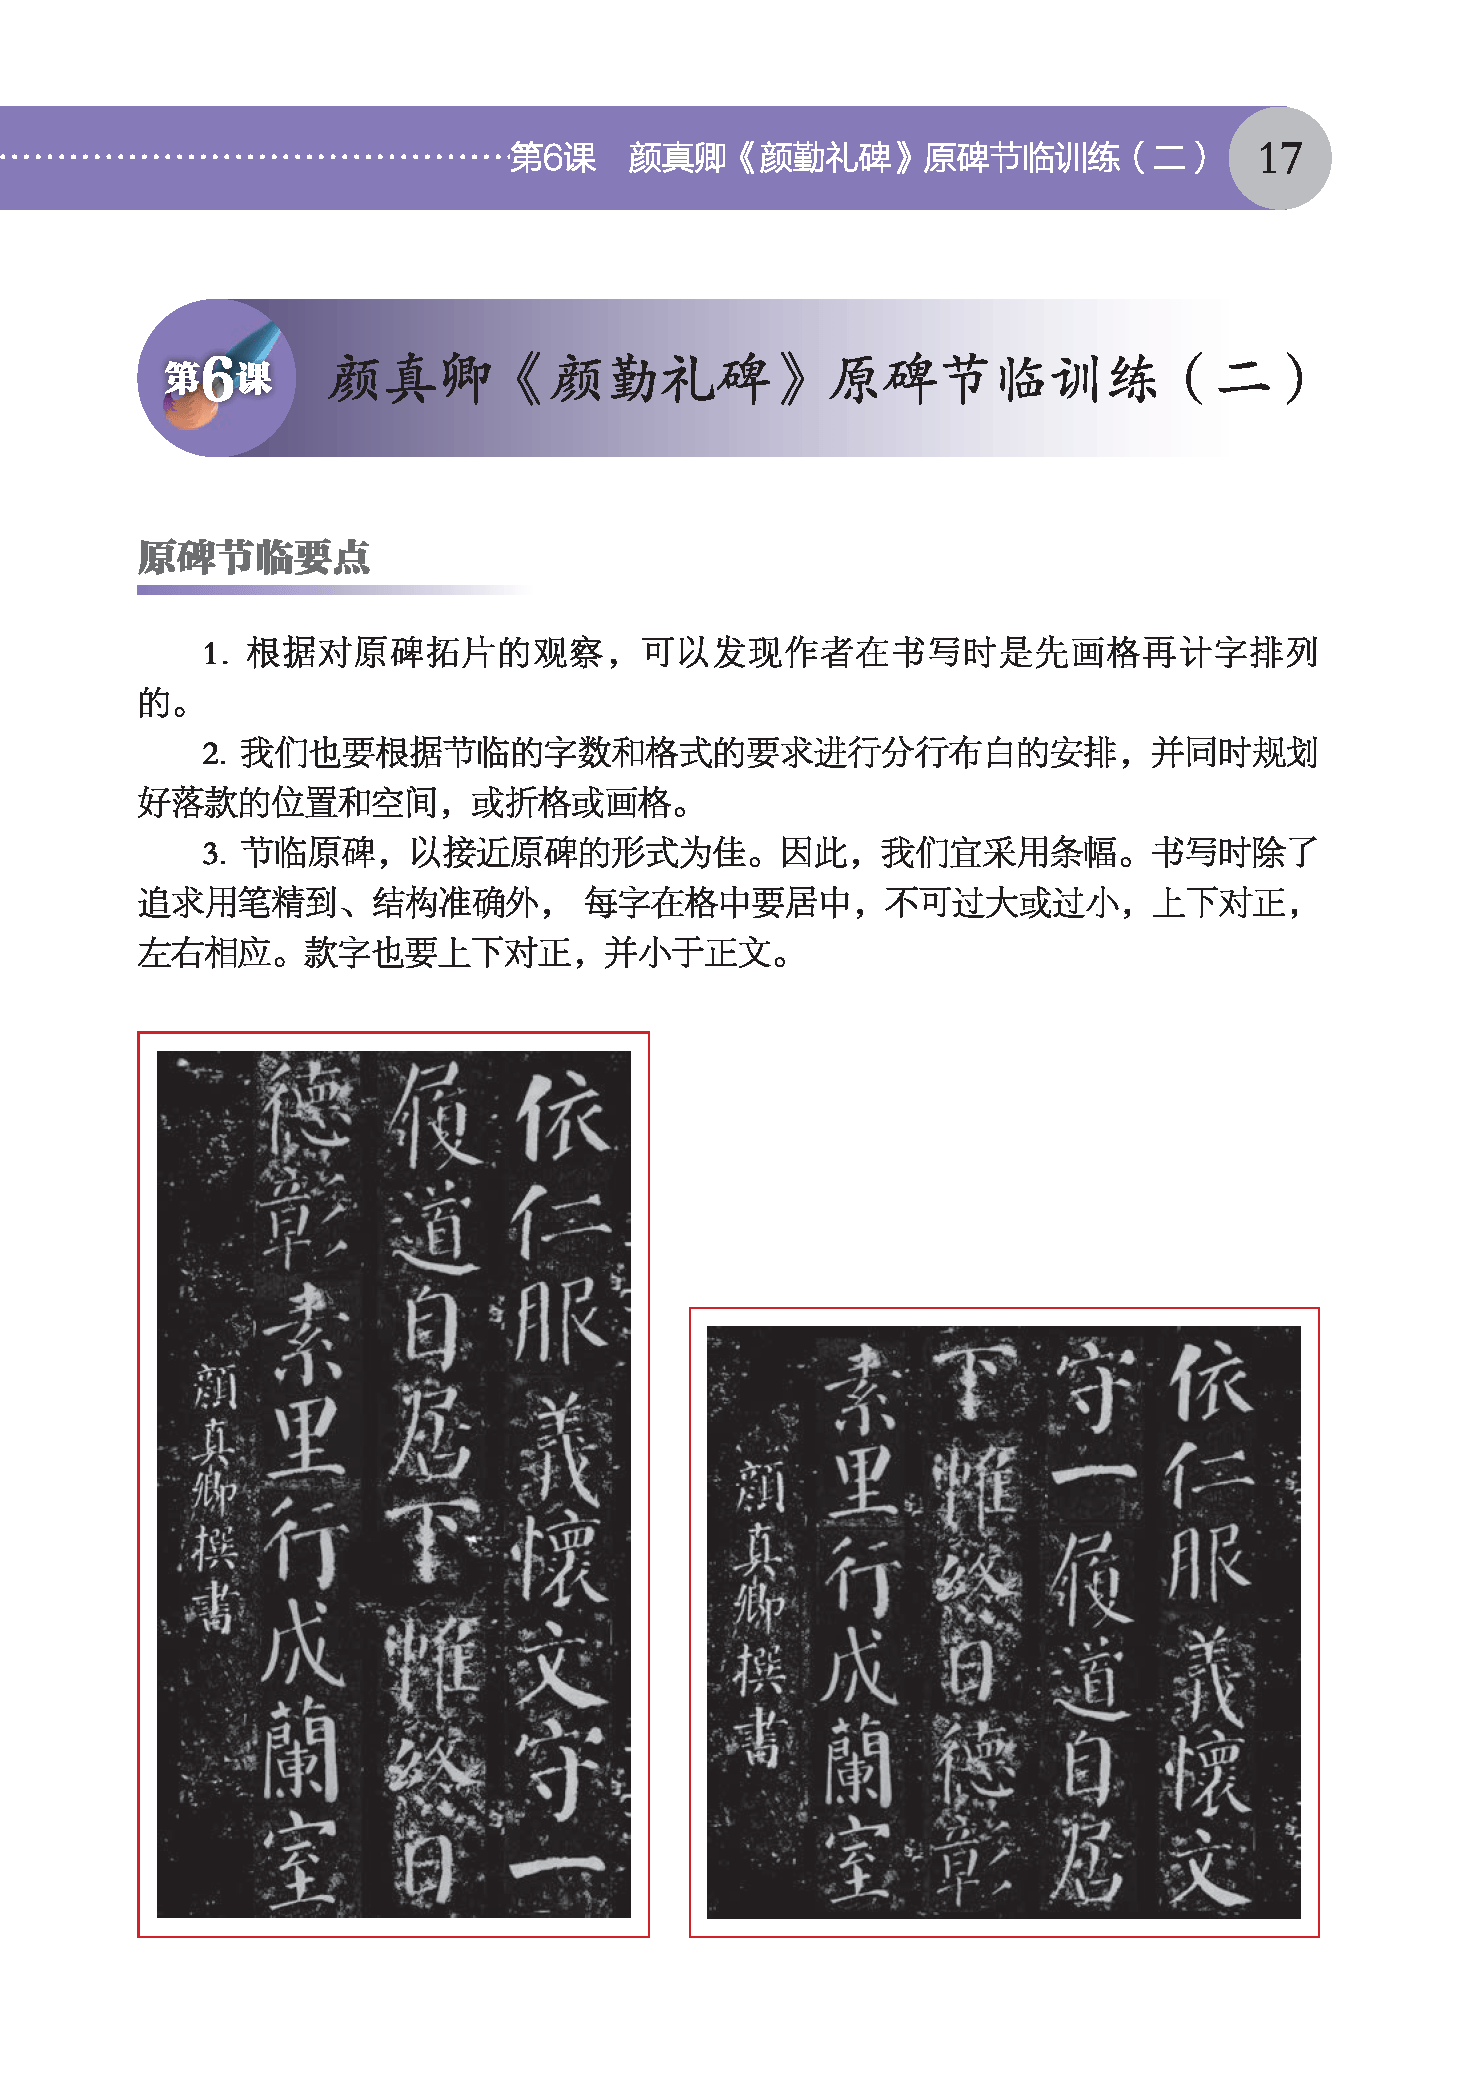 第6课　颜真卿《颜勤礼碑》原碑节临训练（二）　17
第6课
颜真卿《颜勤礼碑》原碑节临训练（二）
原碑节临要点
1. 根据对原碑拓片的观察，可以发现作者在书写时是先画格再计字排列
的。
2. 我们也要根据节临的字数和格式的要求进行分行布白的安排，并同时规划
好落款的位置和空间，或折格或画格。
3. 节临原碑，以接近原碑的形式为佳。因此，我们宜采用条幅。书写时除了
追求用笔精到、结构准确外， 每字在格中要居中，不可过大或过小，上下对正，
左右相应。款字也要上下对正，并小于正文。
依仁服義懷文守一
履道自居下帷终日
德彰素里行成蘭室
顔真卿撰書
依仁服義懷文
守一履道自居
下帷终日德彰
素里行成蘭室
顔真卿撰書